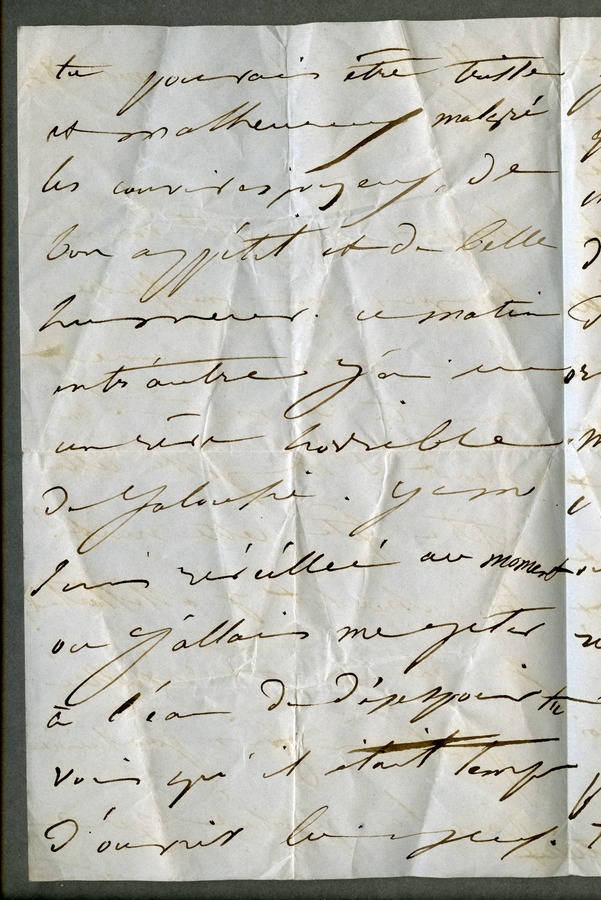 tu pourais être triste
et malheureux malgré
les convives joyeux, de
bon appétit et de belle
humeur. ce matin
entr'autre j'ai eu
un rêve horrible
de jalousie. je me
suis réveillée au moment
ou j'allais me jeter
à l'eau de désespoir tu
vois qu'il était temps
d'ouvrir les yeux.